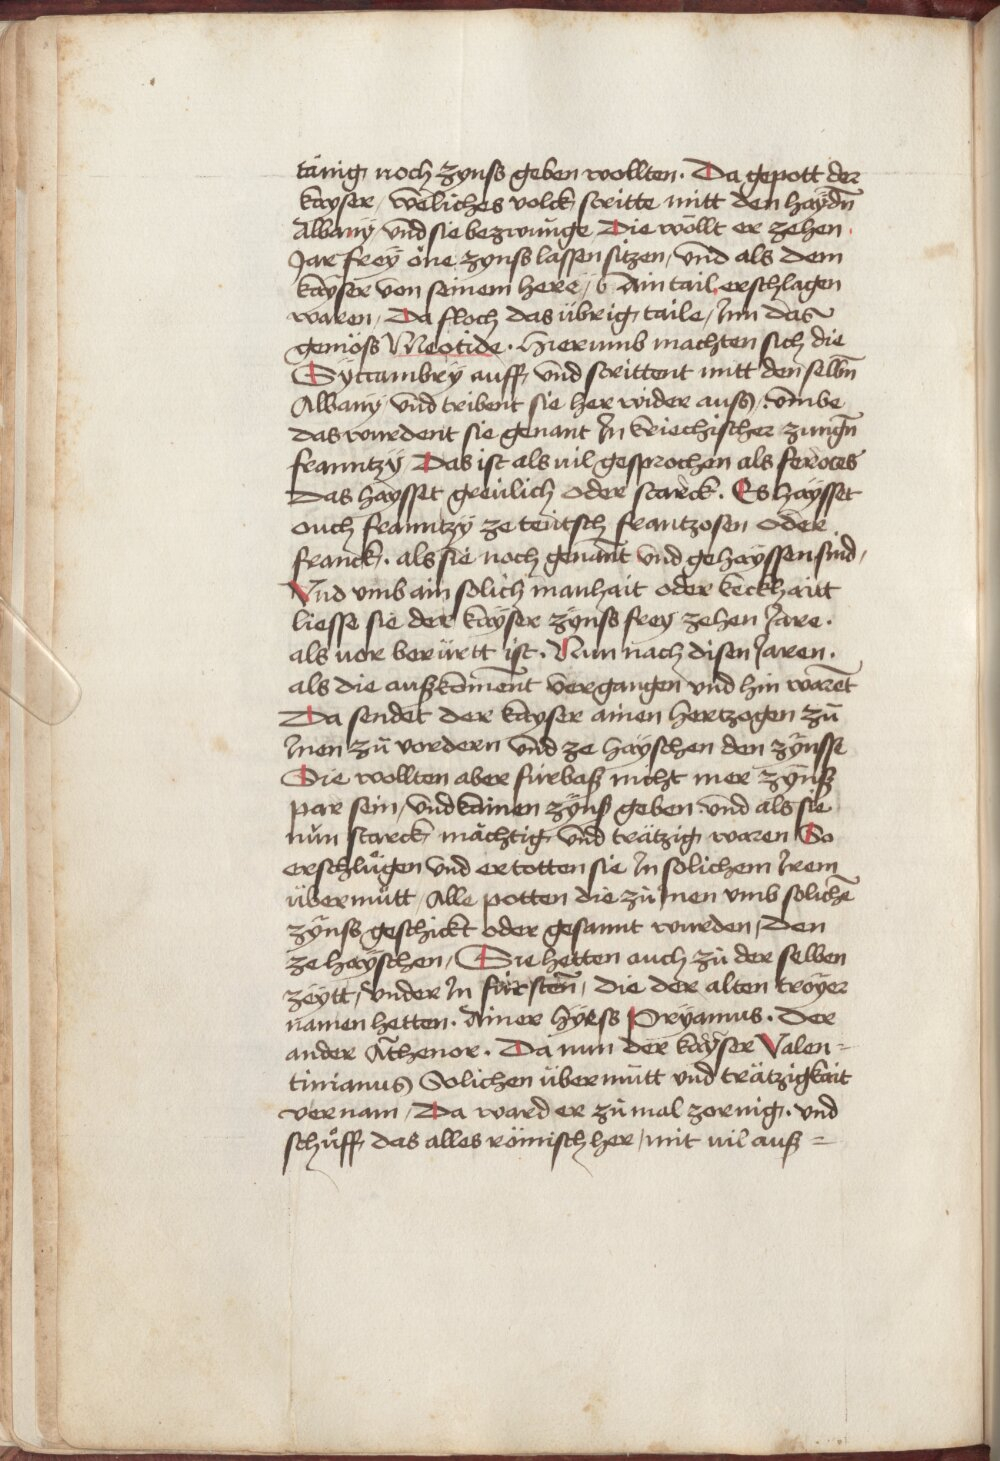 tänig noch zynss geben wollten. Da gepott der
kayser, weliches volck stritte mitt den haydn̄
Albany vnd sie bezwunge Die wöllt er zehen
Jar frey one zynss lassen sitzen, vnd als dem
kayser von seinem here, Ain tail erschlagen
waren, Da floch das übrig taile, Inn das
gemöss Meotide. Hierumb machten sich die
Syccambry auff, vnd strittent mitt den selbn̄
Albany vnd tribent sie her wider auss, vmbe
das wurdent sie genant In kriechischer zungn̄
franntzy Das ist als uil gesprochen als feroces
Das haysset greulich oder starck. Es haysset
ouch franntzy ze teutsch frantzosen oder
franck. als sie noch genant vnd gehayssen sind,
Vnd vmb ain solich manhait oder keckhaitt
liesse sie der kayser zynss frey zehen Jare.
als uor berürtt ist. Nun nach disen Jaren.
als die ausskoment vergangen vnd hin warēt
Da sendet der kayser ainen hertzogen zů
Inen zů vordern vnd ze hayschen den zynsse
Sie wollten aber fürbaß nicht mer zynß
par sein, vnd kainen zynß geben vnd als sie
nun starck mächtig vnd trätzig waren So
erschlůgen vnd ertotten sie In solichem Irem
übermůtt, Alle potten die zů Inen vmb solichē
zynss geschickt oder gesannt wurden, Den
ze hayschen, Sie hetten auch zů der selben
zeytt, vnder In fürsten, die der alten troyer
namen hetten. Ainer hyess Pryamus. Der
ander Āthenor. Da nun der kayser Valen=
tinianus Solichen übermutt vnd trätzigkait
vernam, Da ward er zů mal zornig. vnd
schůff das alles römisch her, mit uil auß=